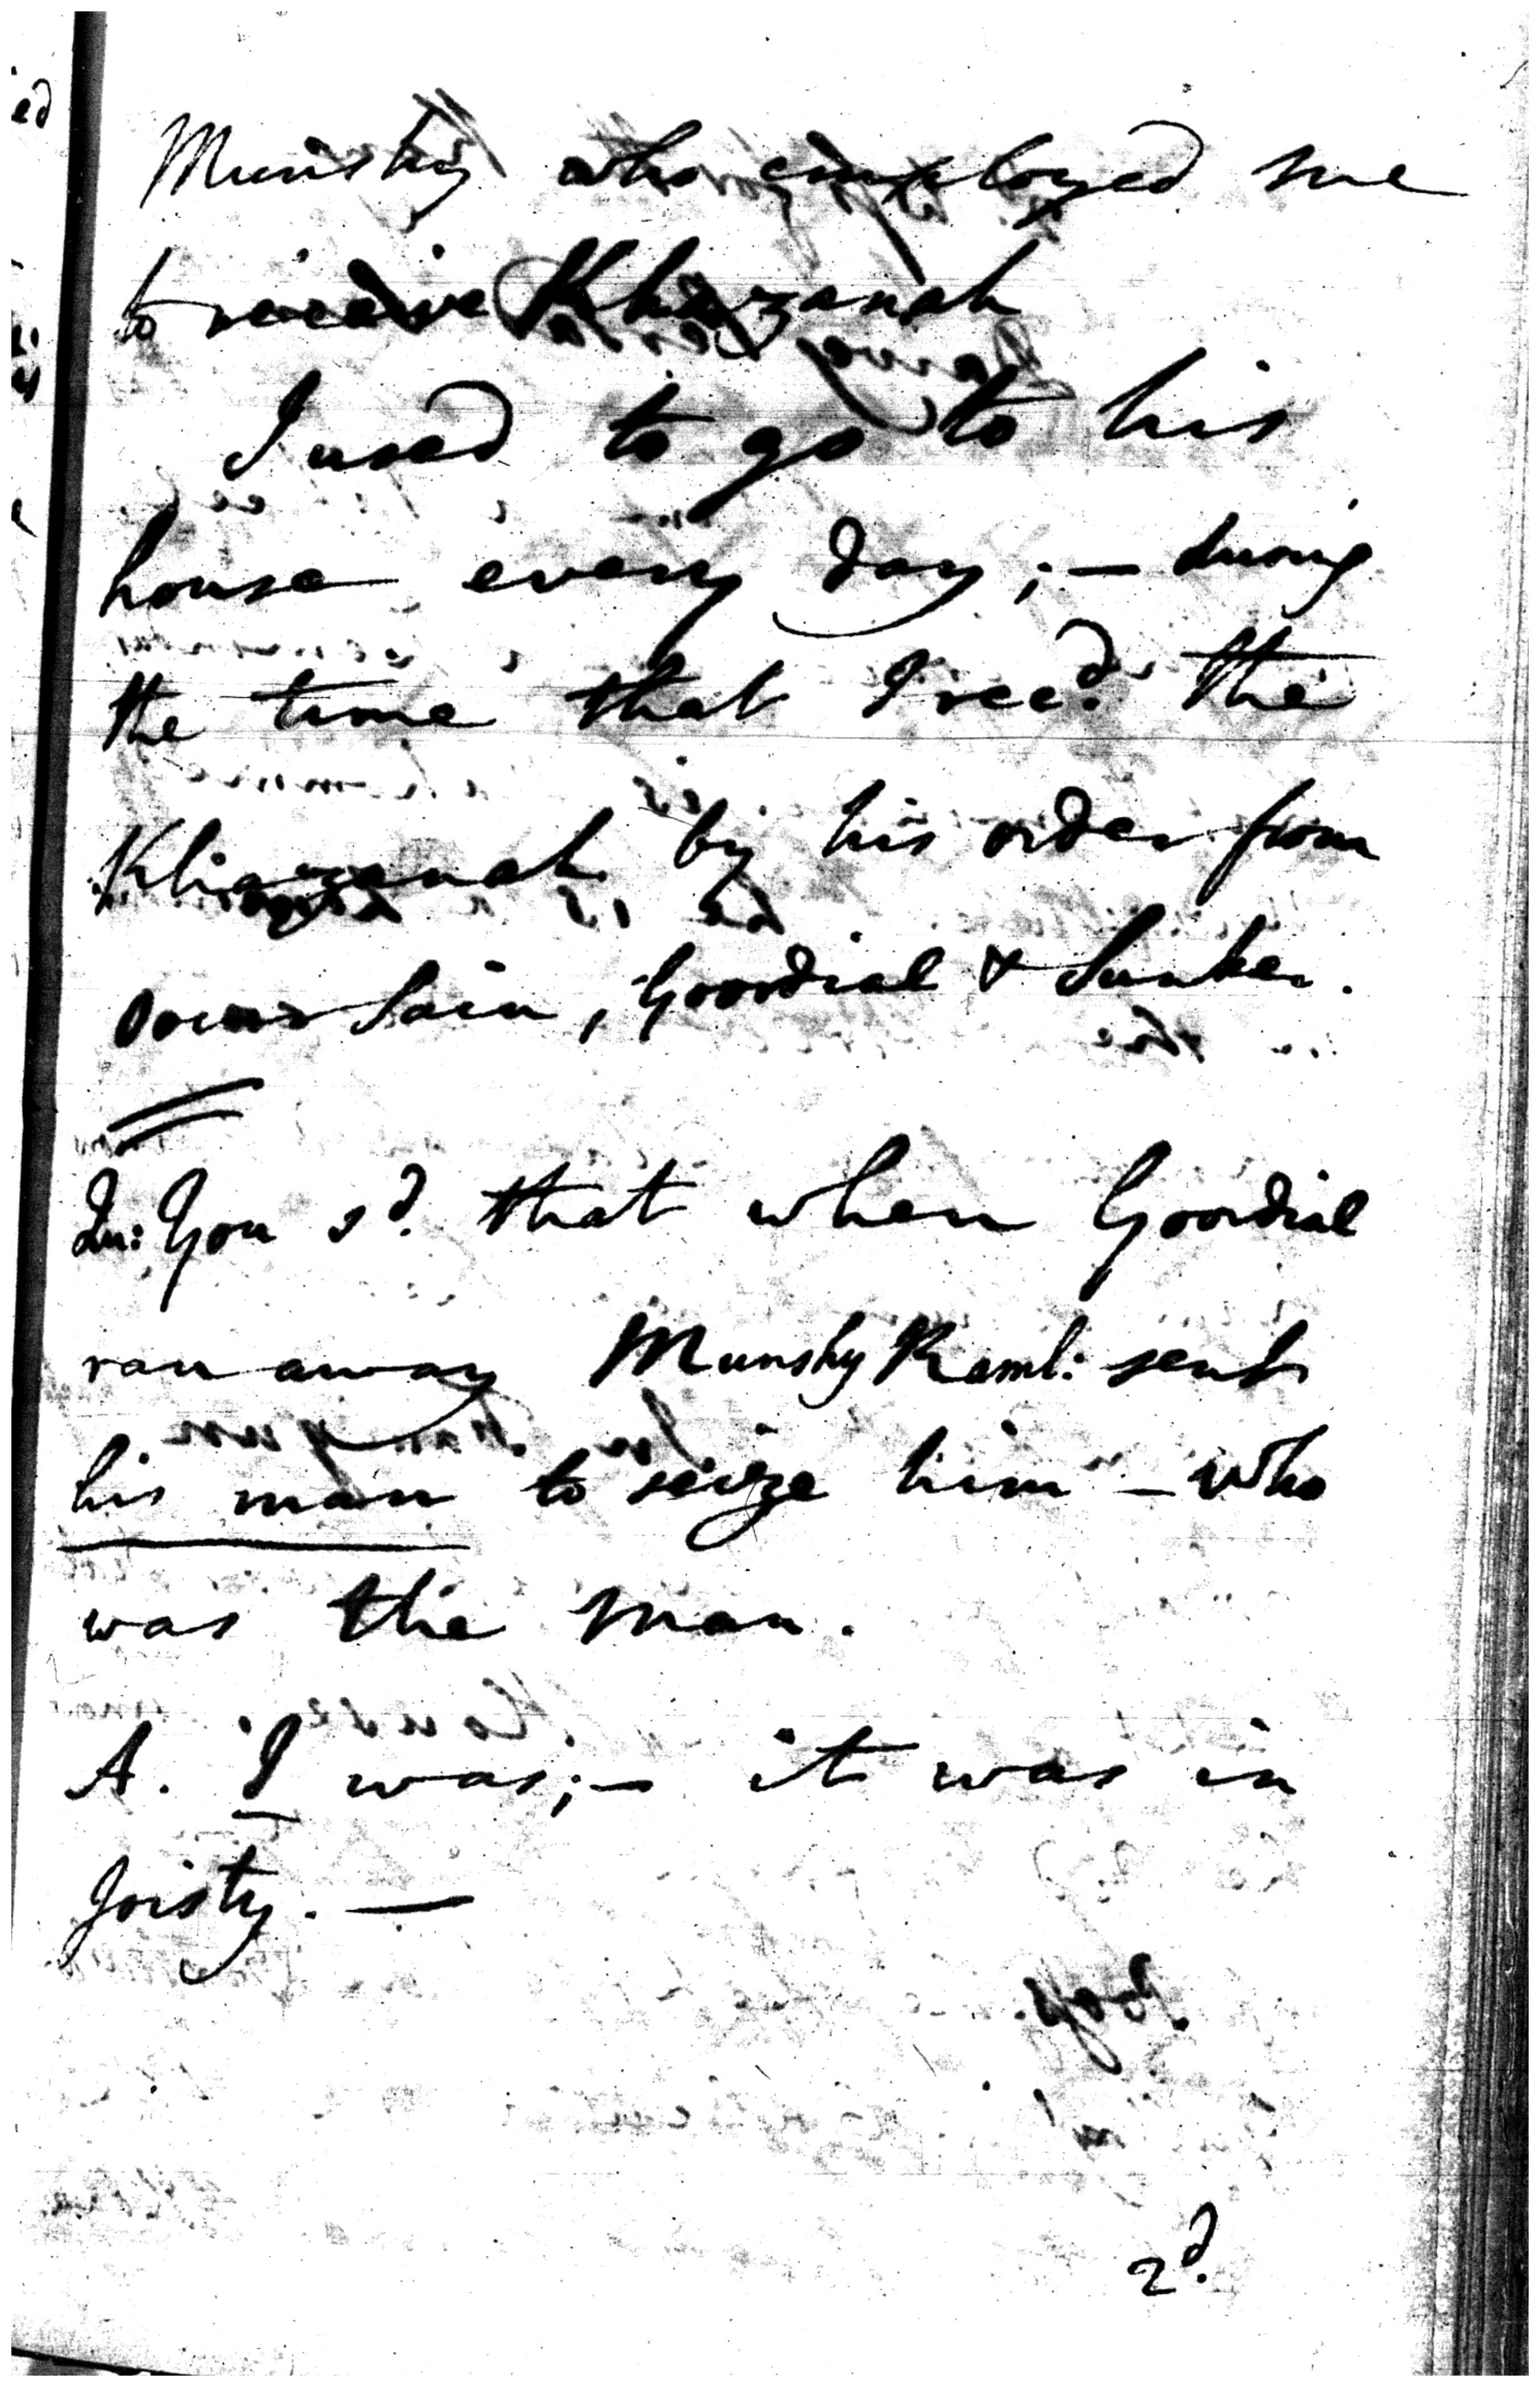 Munshy who employed me
to receive Khazanah
I used to go to his
house every day; – during
the time that I recd. the
Khazanah by his order from
Sain, Goordial & Sunker.
Qu: You sd. that when Goordial
ran away Munshy Raml: sent
his man to seize him – who
was the man.
A. I was; – it was in
Joisty. –
2d.